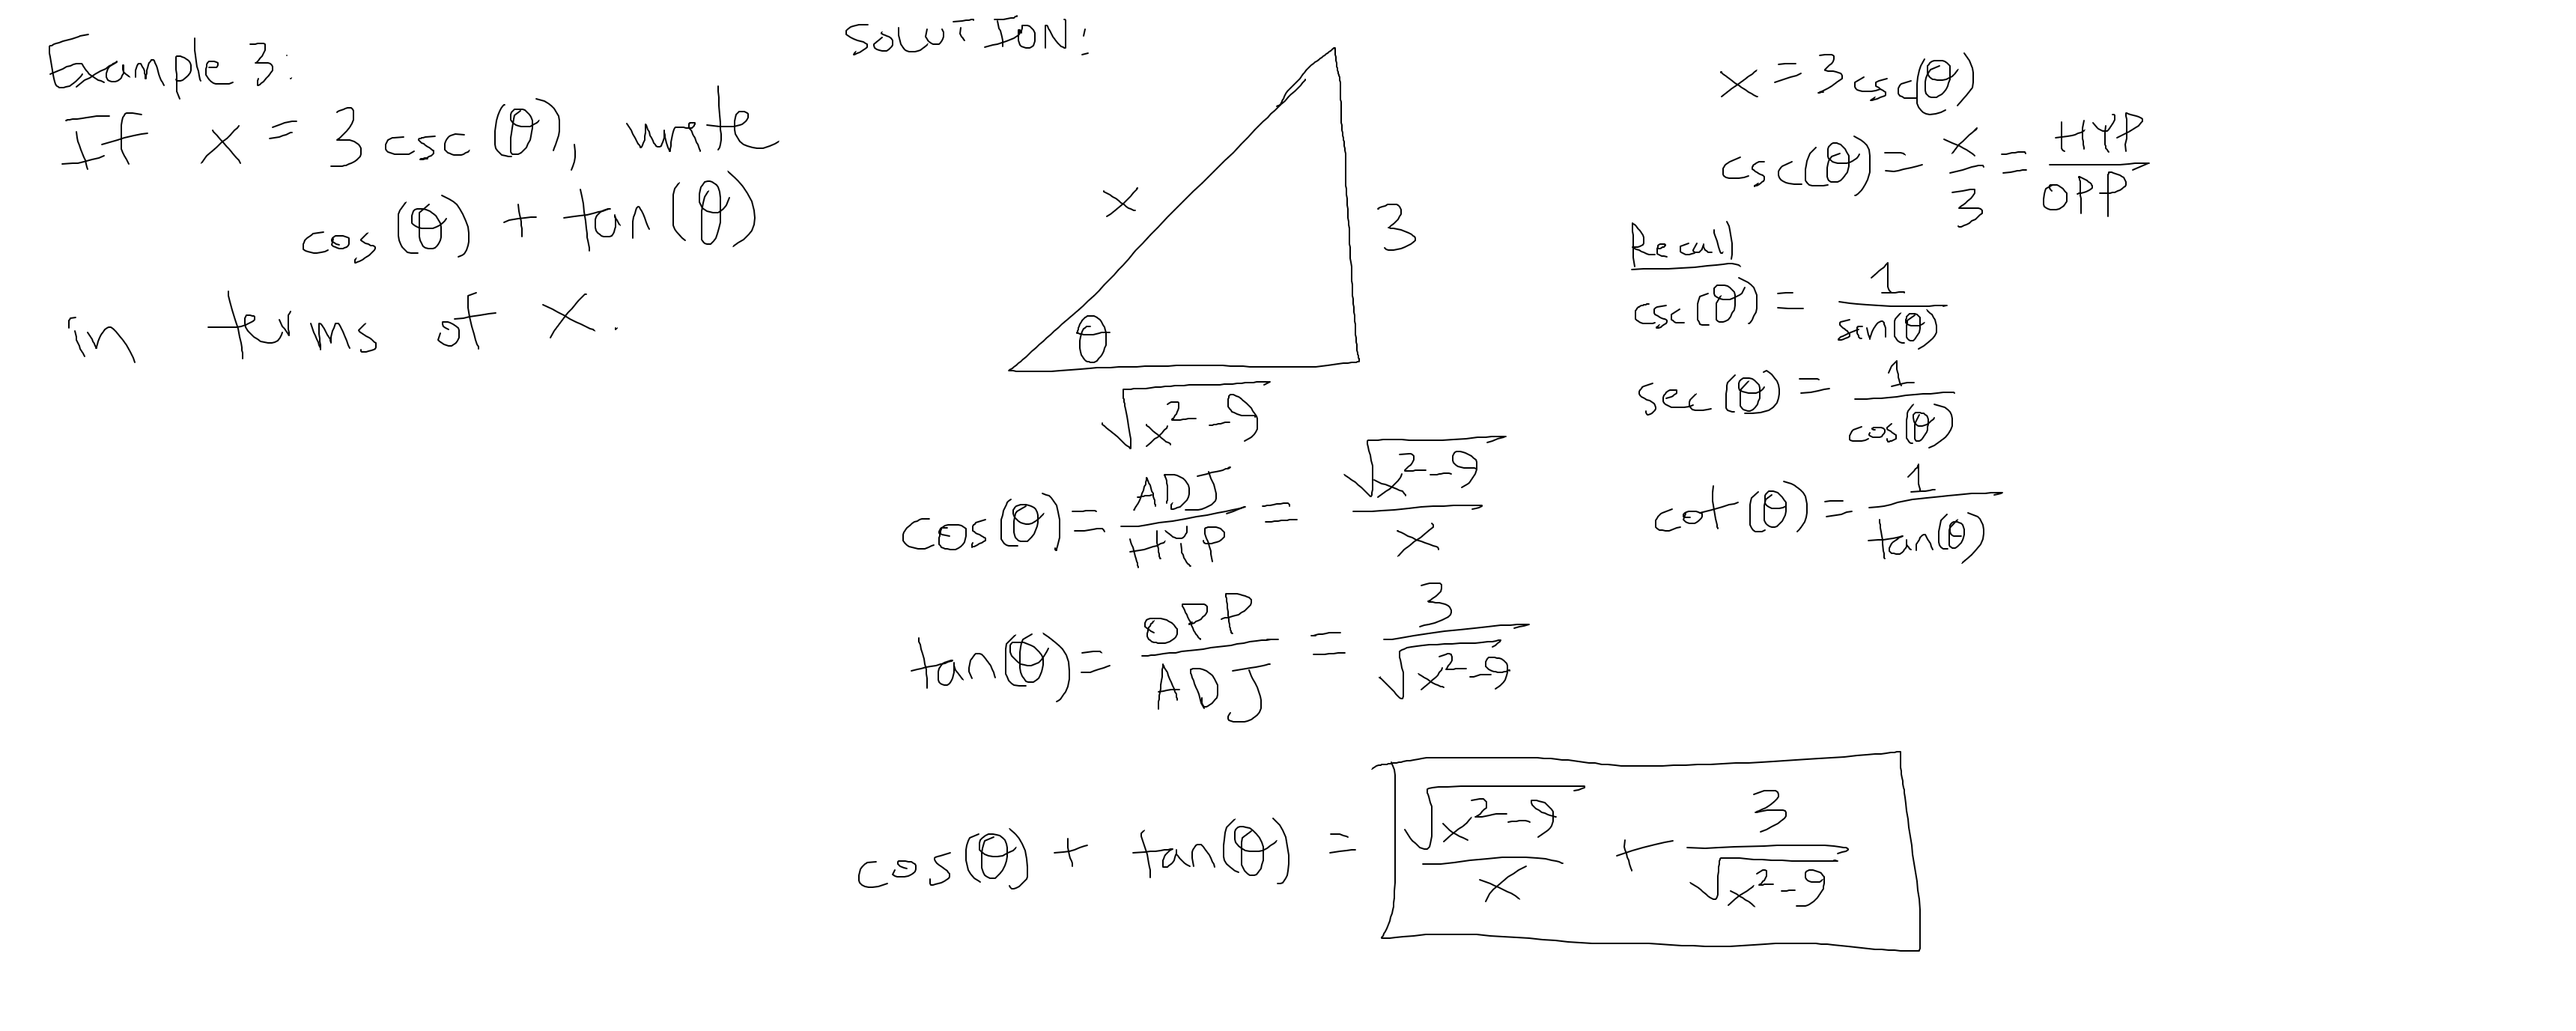 Example 3:
If x = 3 csc(θ), write
cos(θ) + tan(θ)
in terms of x.
SOLUTION:
x
3
θ
√(x²-9)
cos(θ) = ADJ/HYP = √(x²-9)/x
tan(θ) = OPP/ADJ = 3/√(x²-9)
cos(θ) + tan(θ) = √(x²-9)/x + 3/√(x²-9)
x = 3 csc(θ)
csc(θ) = x/3 = HYP/OPP
Recall
csc(θ) = 1/sin(θ)
sec(θ) = 1/cos(θ)
cot(θ) = 1/tan(θ)